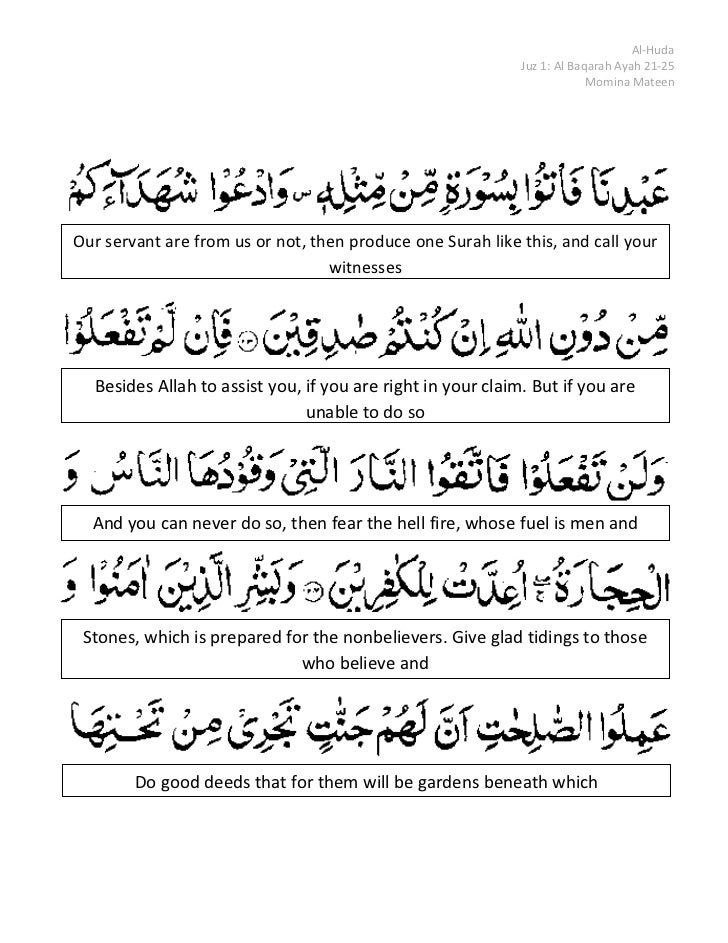 Al-Huda
Juz 1: Al Baqarah Ayah 21-25
Momina Mateen
عَبْدِنَا فَأْتُوْا بِسُوْرَةٍ مِّنْ مِّثْلِهٖ ۪ وَادْعُوْا شُهَدَآءَكُمْ
Our servant are from us or not, then produce one Surah like this, and call your
witnesses
مِّنْ دُوْنِ اللّٰهِ اِنْ كُنْتُمْ صٰدِقِيْنَ ۝۲۳ فَاِنْ لَّمْ تَفْعَلُوْا
Besides Allah to assist you, if you are right in your claim. But if you are
unable to do so
وَلَنْ تَفْعَلُوْا فَاتَّقُوا النَّارَ الَّتِيْ وَقُوْدُهَا النَّاسُ وَ
And you can never do so, then fear the hell fire, whose fuel is men and
الْحِجَارَةُ ۖۚ اُعِدَّتْ لِلْكٰفِرِيْنَ ۝۲۴ وَبَشِّرِ الَّذِيْنَ اٰمَنُوْا وَ
Stones, which is prepared for the nonbelievers. Give glad tidings to those
who believe and
عَمِلُوا الصّٰلِحٰتِ اَنَّ لَهُمْ جَنّٰتٍ تَجْرِيْ مِنْ تَحْتِهَا
Do good deeds that for them will be gardens beneath which